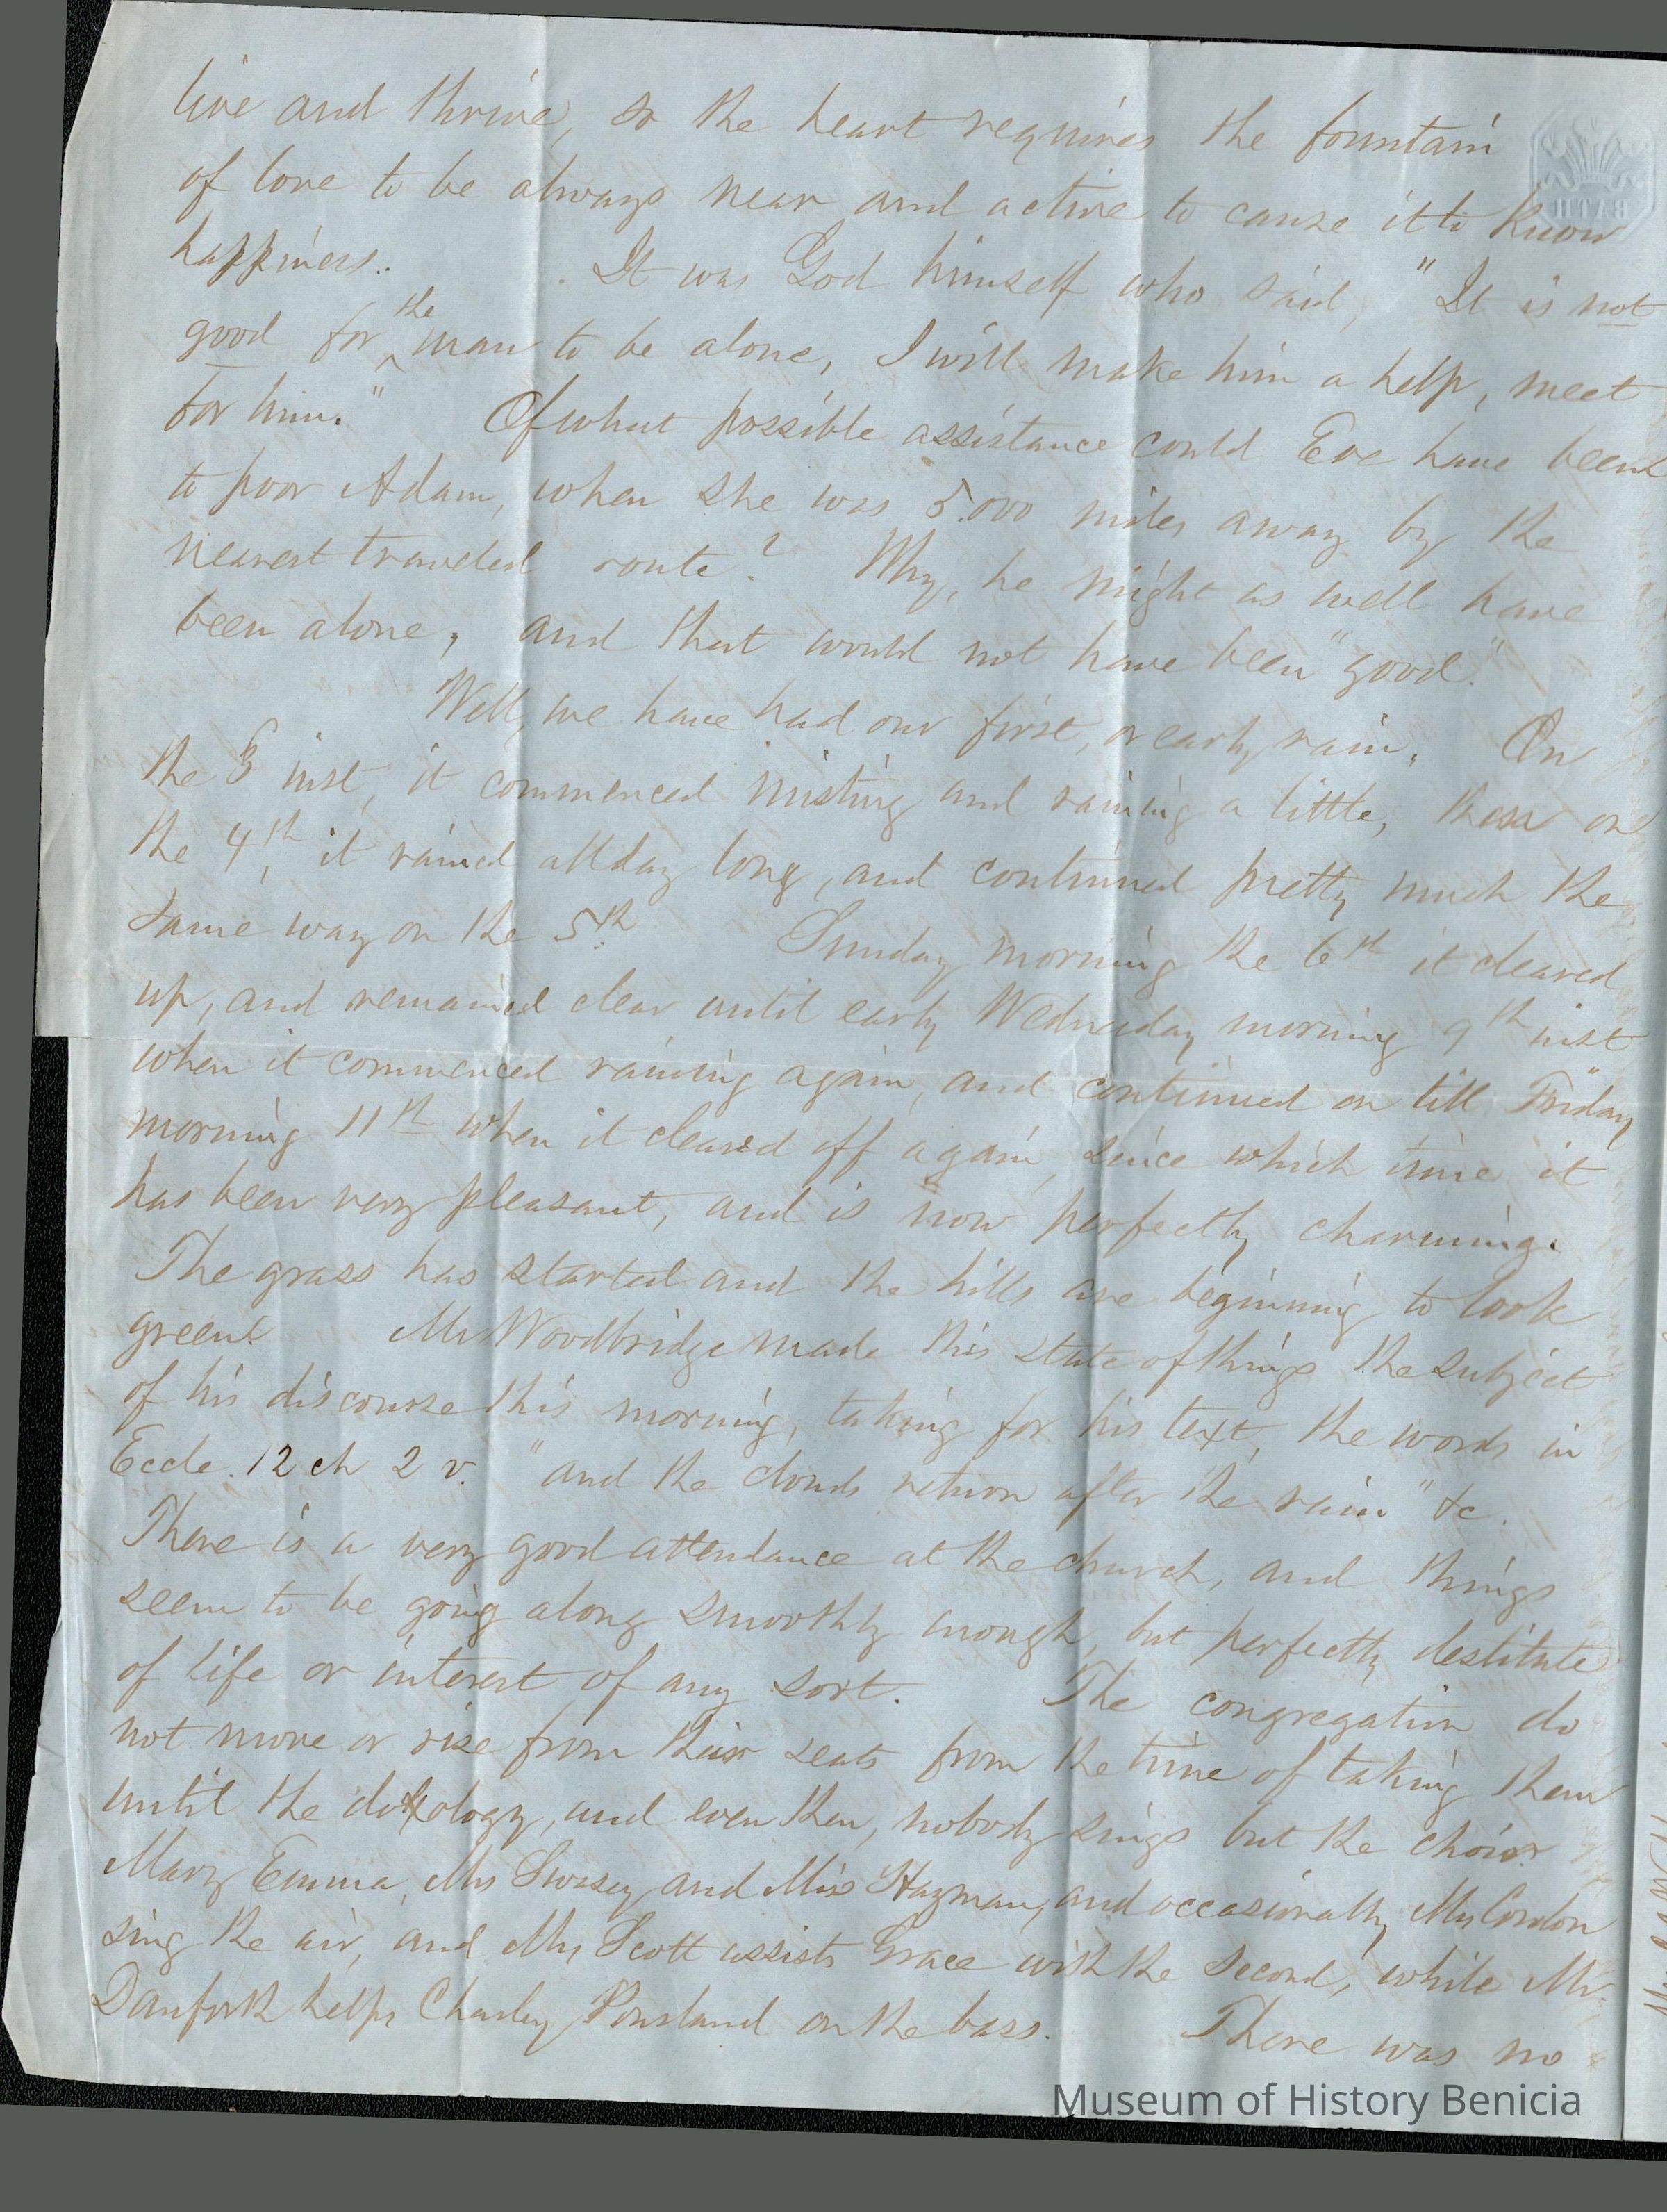 live and thrive, so the heart requires the fountain
of love to be always near and active to cause it to know
happiness.. It was God himself who said, "It is not
good for the man to be alone, I will make him a help, meet
for him." Of what possible assistance could Eve have been
to poor Adam, when she was 5.000 miles away by the
nearest traveled route? Why, he might as well have
been alone, and that would not have been "good."
Well, we have had our first, or early rain. On
the 3 inst, it commenced misting and raining a little, then on
the 4th, it rained all day long, and continued pretty much the
same way on the 5th. Sunday morning the 6th it cleared
up, and remained clear until early Wednesday morning 9th inst
when it commenced raining again, and continued on till Friday
morning 11th when it cleared off again, since which time it
has been very pleasant, and is now perfectly charming.
The grass has started and the hills are beginning to look
green. Mr Woodbridge made this state of things the subject
of his discourse this morning, taking for his text, the words in
Eccle. 12 ch 2 v. "and the clouds return after the rain" &c.
There is a very good attendance at the church, and things
seem to be going along smoothly enough, but perfectly destitute
of life or interest of any sort. The congregation do
not move or rise from their seats from the time of taking them
until the doxology, and even then, nobody sings but the choir.
Mary Emma, Mrs Swasey and Miss Hayman, and occasionally Mrs Cordon
sing the air, and Mrs Scott assists Grace with the second, while Mr.
Danforth helps Charley Poursland on the bass. There was no
BATH
Museum of History Benicia